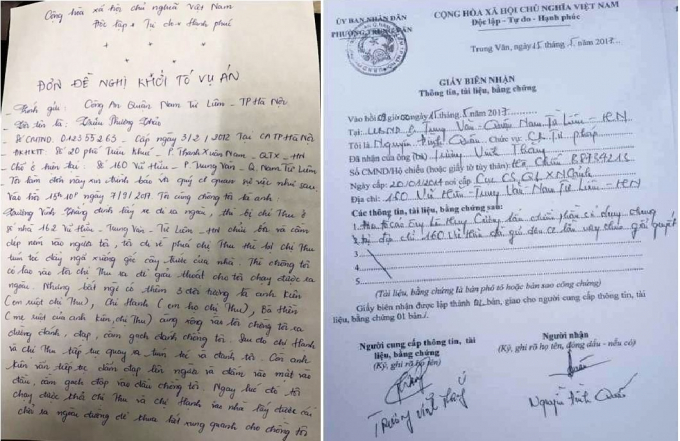 Cộng hòa xã hội chủ nghĩa Việt Nam
Độc lập * Tự do * Hạnh phúc
ĐƠN ĐỀ NGHỊ KHỞI TỐ VỤ ÁN
Kính gửi: Công An Quận Nam Từ Liêm - TP Hà Nội
Tôi tên là: Phương
Số CMTND. 012355265 - Cấp ngày 3/2/2012 Tại CA TP Hà Nội
ĐKHKTT Số 20 phố Triều Khúc P. Thanh Xuân Nam - QTX - HN
Chỗ ở hiện tại: Số 160 Vũ Hữu - P Trung Văn - Q. Nam Từ Liêm
Tôi làm đơn này xin trình báo và quý cơ quan về việc như sau
Vào hồi 15h10p ngày 7/9/2017 Tôi cùng chồng tôi là anh
Trương Vinh Thắng định lấy xe đi ra ngoài, thì bị chị Thu ở
số nhà 162 Vũ Hữu - Trung Văn - Từ Liêm - HN chửi bới và cầm
dép ném vào người tôi, tôi đi về phía chị Thu thì bị chị Thu
túm tóc đẩy ngã xuống gốc cây trước cửa nhà. Thì chồng tôi
có lao vào lôi chị Thu ra để giải thoát cho tôi chạy được ra
ngoài. Nhưng bất ngờ có thêm 3 đối tượng là anh Kiên
(em ruột chị Thu), Chị Hạnh (em họ chị Thu), Bà Hiền
(mẹ ruột của anh Kiên, chị Thu) cùng xông vào lôi chồng tôi ra
đường đánh, đạp, cầm gạch đánh chồng tôi. Sau đó chị Hạnh
và chị Thu tiếp tục quay ra túm tôi và đánh tôi. Còn anh
Kiên vẫn tiếp tục đấm đạp lên người và đấm vào mặt vào
đầu, cầm gạch đập vào đầu chồng tôi. Ngay lúc đó tôi
chạy được thì chị Thu và chị Hạnh vào nhà lấy được cái
chổi ra ngoài đường để khua bất xung quanh cho chồng tôi
ỦY BAN NHÂN DÂN
PHƯỜNG TRUNG VĂN
CỘNG HÒA XÃ HỘI CHỦ NGHĨA VIỆT NAM
Độc lập - Tự do - Hạnh phúc
Trung Văn, ngày 15 tháng 5 năm 2017
GIẤY BIÊN NHẬN
Thông tin, tài liệu, bằng chứng
Vào hồi 09 giờ 00 ngày 15 tháng 5 năm 2017
Tại: UBND P Trung Văn - Quận Nam Từ Liêm - HN
Tôi là Nguyễn Đình Quân. Chức vụ: CB Tư pháp
Đã nhận của ông (bà) Trương Vinh Thắng
Số CMND/Hộ chiếu (hoặc giấy tờ tùy thân): Hộ Chiếu B8739213
Ngày cấp: 20/01/2014 nơi cấp Cục QLXN Cảnh
Địa chỉ: 160 Vũ Hữu - Trung Văn Nam Từ Liêm - HN
Các thông tin, tài liệu, bằng chứng sau:
1.
2. địa chỉ 160 Vũ Hữu giải quyết
3
4
5
(Tài liệu, bằng chứng là bản phô tô hoặc bản sao công chứng)
Giấy biên nhận được lập thành bản, giao cho người cung cấp thông tin, tài
liệu, bằng chứng 01 bản./.
Người cung cấp thông tin, tài
liệu, bằng chứng
(Ký, ghi rõ họ tên)
Người nhận
(Ký, ghi rõ họ tên, đóng dấu - nếu có)
Trương Vinh Thắng
Nguyễn Đình Quân